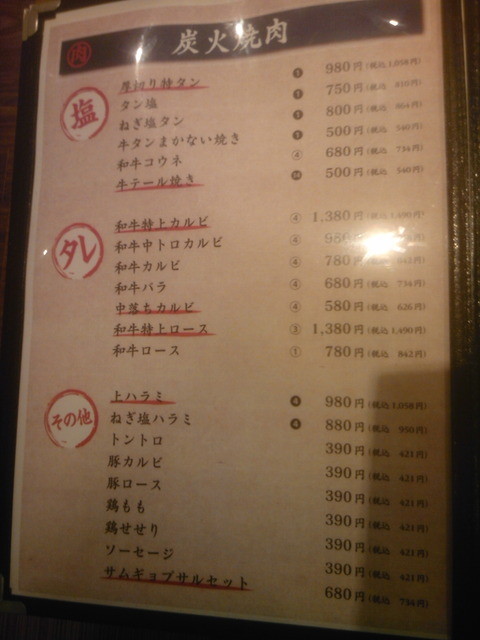 肉 炭火焼肉
塩
厚切り特タン 980円(税込1,058円)
タン塩 750円(税込 810円)
ねぎ塩タン 800円(税込 864円)
牛タンまかない焼き 500円(税込 540円)
和牛コウネ ④ 680円(税込 734円)
牛テール焼き 500円(税込 540円)
タレ
和牛特上カルビ ④ 1,380円(税込1,490円)
和牛中トロカルビ ④ 980円
和牛カルビ ④ 780円(税込 842円)
和牛バラ ④ 680円(税込 734円)
中落ちカルビ ④ 580円(税込 626円)
和牛特上ロース ③ 1,380円(税込1,490円)
和牛ロース ① 780円(税込 842円)
その他
上ハラミ ❹ 980円(税込1,058円)
ねぎ塩ハラミ ❹ 880円(税込 950円)
トントロ 390円(税込 421円)
豚カルビ 390円(税込 421円)
豚ロース 390円(税込 421円)
鶏もも 390円(税込 421円)
鶏せせり 390円(税込 421円)
ソーセージ 390円(税込 421円)
サムギョプサルセット 680円(税込 734円)